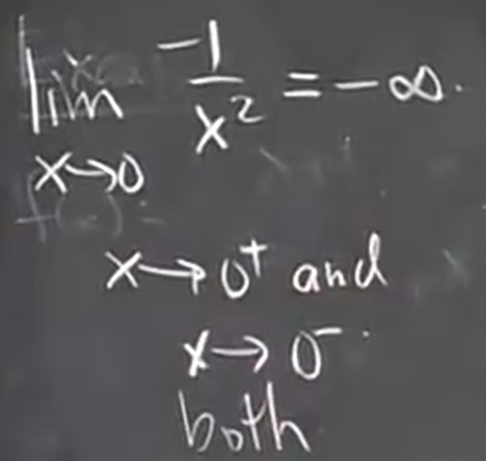 lim x→0 -1/x² = -∞.
x→0⁺ and
x→0⁻.
both